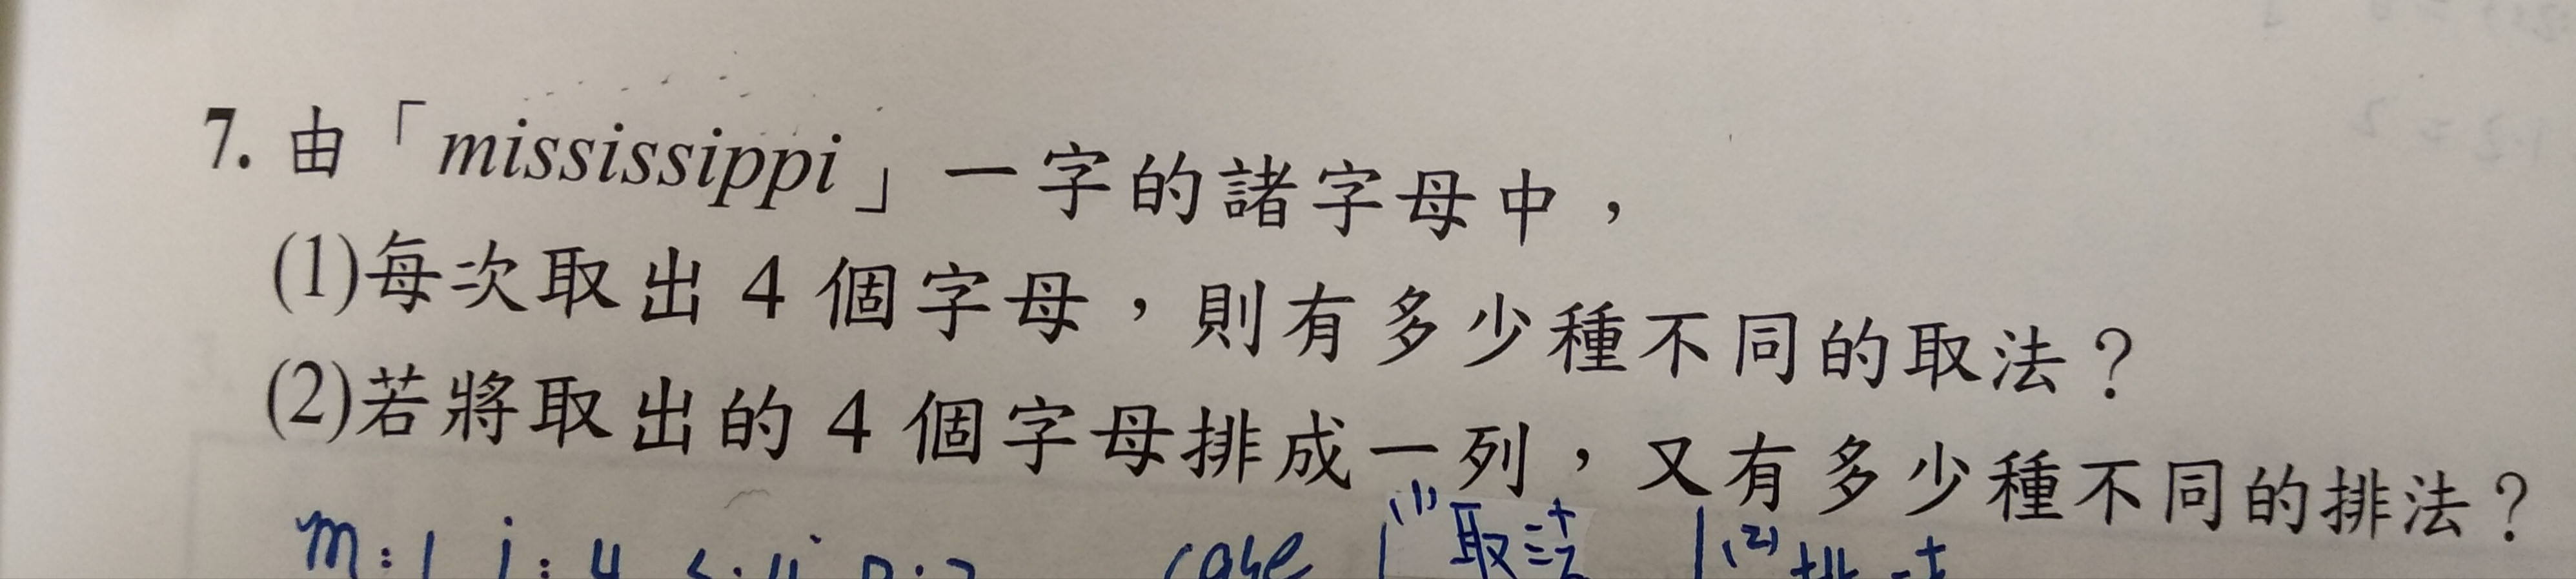 7. 由「mississippi」一字的諸字母中，
(1)每次取出 4 個字母，則有多少種不同的取法？
(2)若將取出的 4 個字母排成一列，又有多少種不同的排法？
m:1 i:4 s:4 p:2 case (1)取法 (2)排法